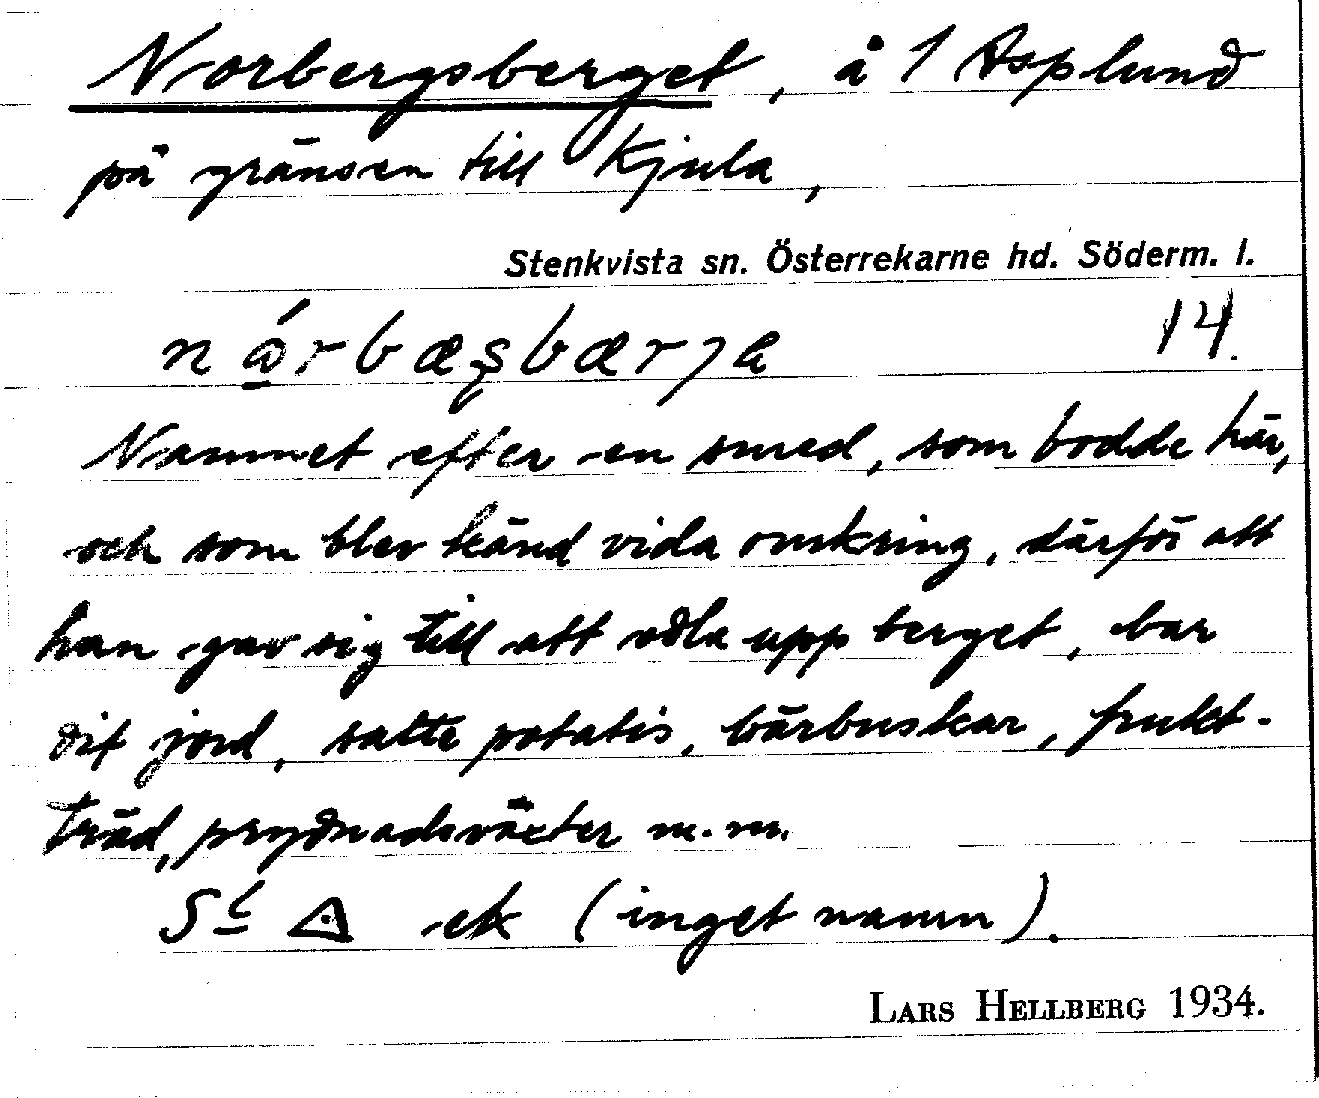 Norbergsberget, å 1 Asplund
på gränsen till Kjula,
Stenkvista sn. Österrekarne hd. Söderm. l.
14.
Namnet efter en smed, som bodde här,
och som blev känd vida omkring, därför att
han gav sig till att odla upp berget, bar
dit jord, satte potatis, bärbuskar, frukt-
träd, prydnadsväxter m.m.
ek (inget namn).
LARS HELLBERG 1934.